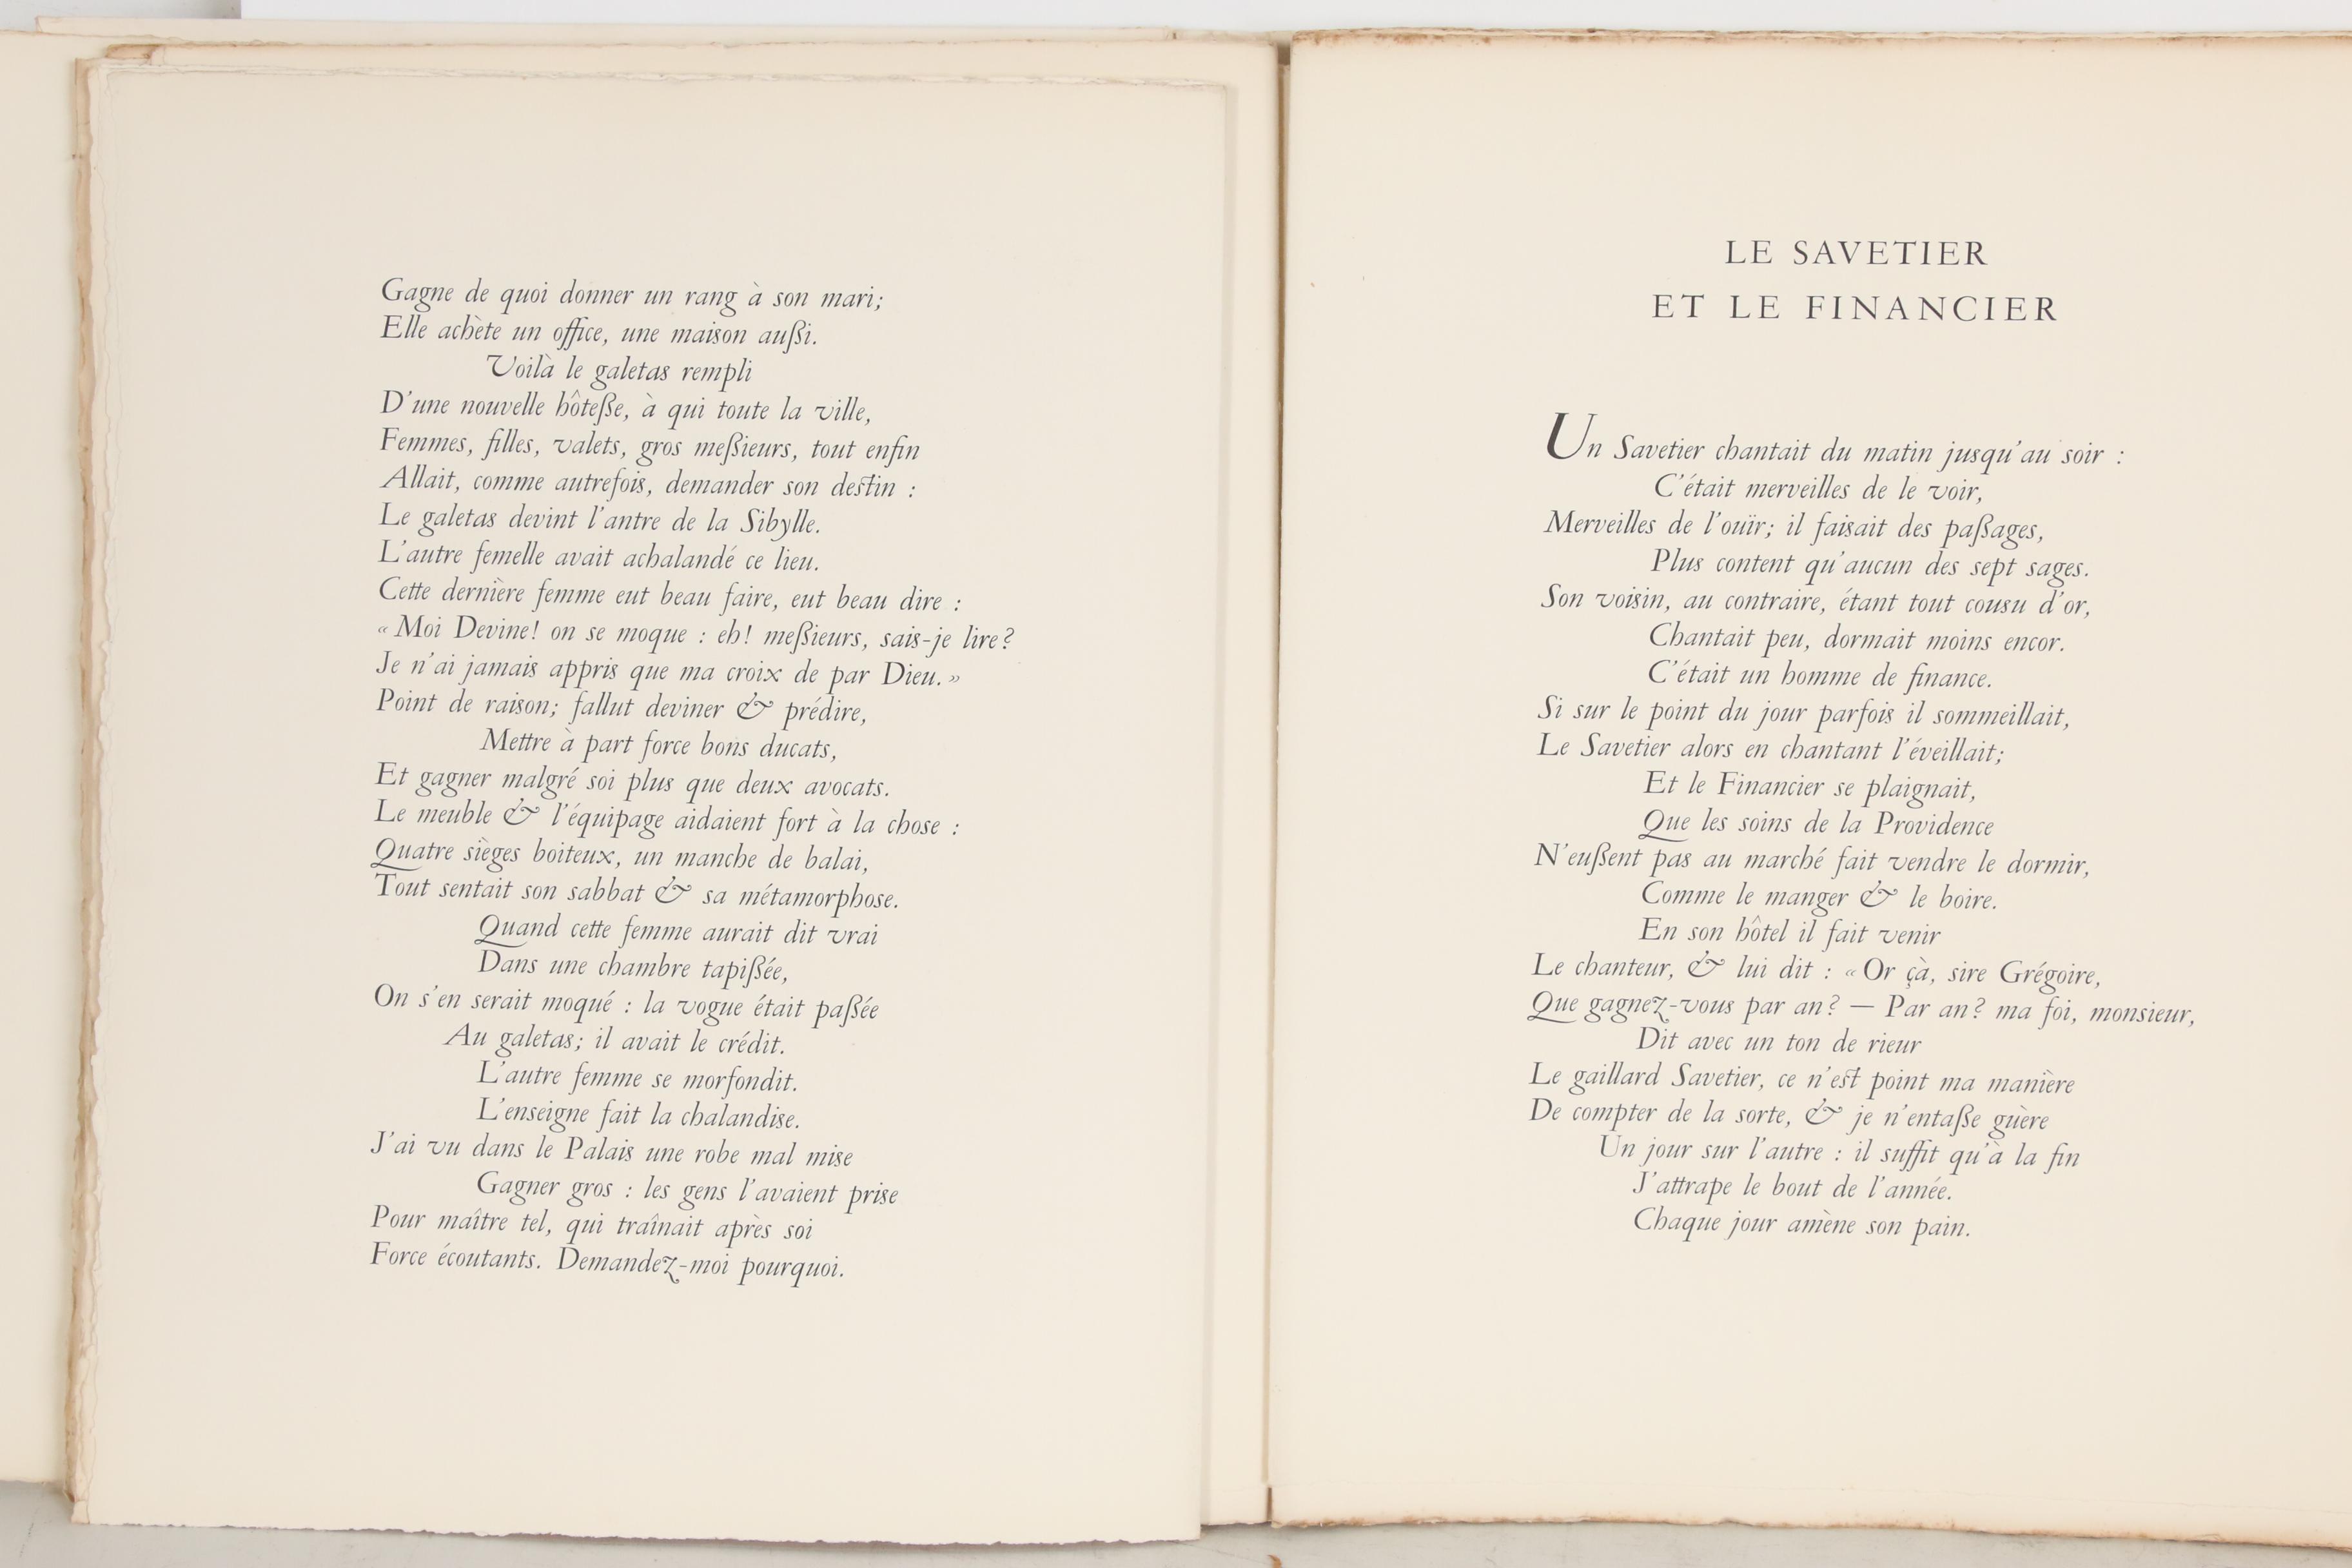 Gagne de quoi donner un rang à son mari;
Elle achète un office, une maison außi.
Voilà le galetas rempli
D'une nouvelle hôteße, à qui toute la ville,
Femmes, filles, valets, gros meßieurs, tout enfin
Allait, comme autrefois, demander son destin :
Le galetas devint l'antre de la Sibylle.
L'autre femelle avait achalandé ce lieu.
Cette dernière femme eut beau faire, eut beau dire :
« Moi Devine! on se moque : eh! meßieurs, sais-je lire?
Je n'ai jamais appris que ma croix de par Dieu. »
Point de raison; fallut deviner & prédire,
Mettre à part force bons ducats,
Et gagner malgré soi plus que deux avocats.
Le meuble & l'équipage aidaient fort à la chose :
Quatre sièges boiteux, un manche de balai,
Tout sentait son sabbat & sa métamorphose.
Quand cette femme aurait dit vrai
Dans une chambre tapißée,
On s'en serait moqué : la vogue était paßée
Au galetas; il avait le crédit.
L'autre femme se morfondit.
L'enseigne fait la chalandise.
J'ai vu dans le Palais une robe mal mise
Gagner gros : les gens l'avaient prise
Pour maître tel, qui traînait après soi
Force écoutants. Demandez-moi pourquoi.
LE SAVETIER
ET LE FINANCIER
Un Savetier chantait du matin jusqu'au soir :
C'était merveilles de le voir,
Merveilles de l'ouïr; il faisait des paßages,
Plus content qu'aucun des sept sages.
Son voisin, au contraire, étant tout cousu d'or,
Chantait peu, dormait moins encor.
C'était un homme de finance.
Si sur le point du jour parfois il sommeillait,
Le Savetier alors en chantant l'éveillait;
Et le Financier se plaignait,
Que les soins de la Providence
N'eußent pas au marché fait vendre le dormir,
Comme le manger & le boire.
En son hôtel il fait venir
Le chanteur, & lui dit : « Or çà, sire Grégoire,
Que gagnez-vous par an? — Par an? ma foi, monsieur,
Dit avec un ton de rieur
Le gaillard Savetier, ce n'est point ma manière
De compter de la sorte, & je n'entaße guère
Un jour sur l'autre : il suffit qu'à la fin
J'attrape le bout de l'année.
Chaque jour amène son pain.